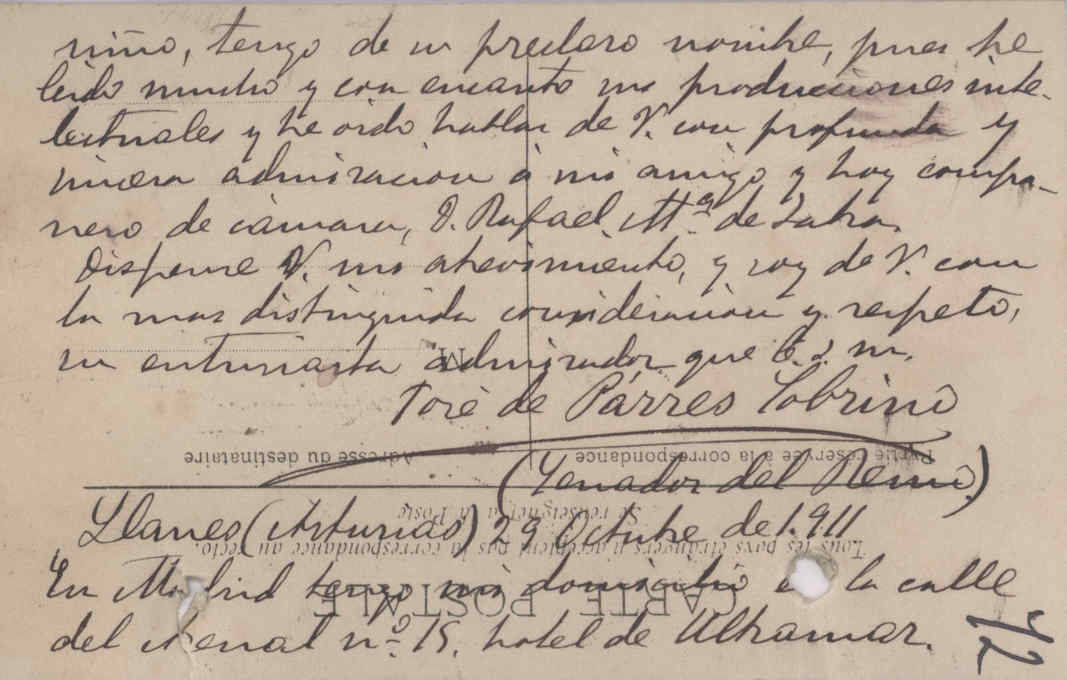 niño, tengo de su preclaro nombre, pues he
leido mucho y con encanto sus producciones inte-
lectuales y he oido hablar de V. con profunda y
sincera admiracion á mi amigo y hoy compa-
ñero de cámara, D. Rafael Mª de Labra.
Dispense V. mi atrevimiento, y soy de V. con
la mas distinguida consideracion y respeto,
su entusiasta admirador que b. s. m.
José de Párres Sobrino
(Senador del Reino)
Llanes (Asturias) 29 Octubre de 1.911
En Madrid tengo mi domicilio en la calle
del Arenal nº 15. hotel de Ultramar.
72
CARTE POSTALE
Tous les pays étrangers n'acceptent pas la correspondance au recto.
Se renseigner à la Poste
Partie réservée à la correspondance
Adresse du destinataire
M